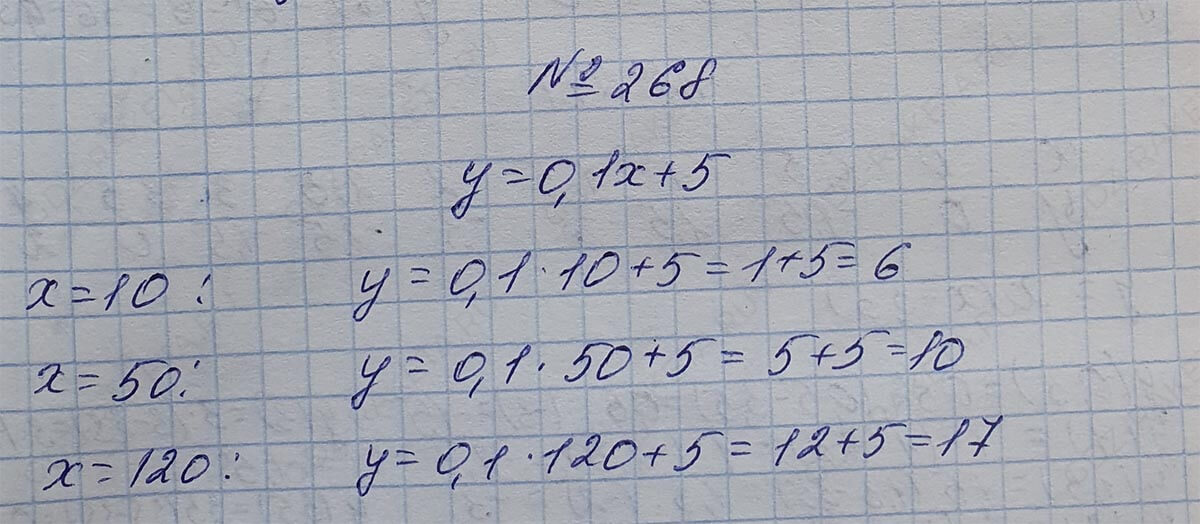 № 268
y = 0,1x + 5
x = 10 : y = 0,1 · 10 + 5 = 1 + 5 = 6
x = 50 : y = 0,1 · 50 + 5 = 5 + 5 = 10
x = 120 : y = 0,1 · 120 + 5 = 12 + 5 = 17